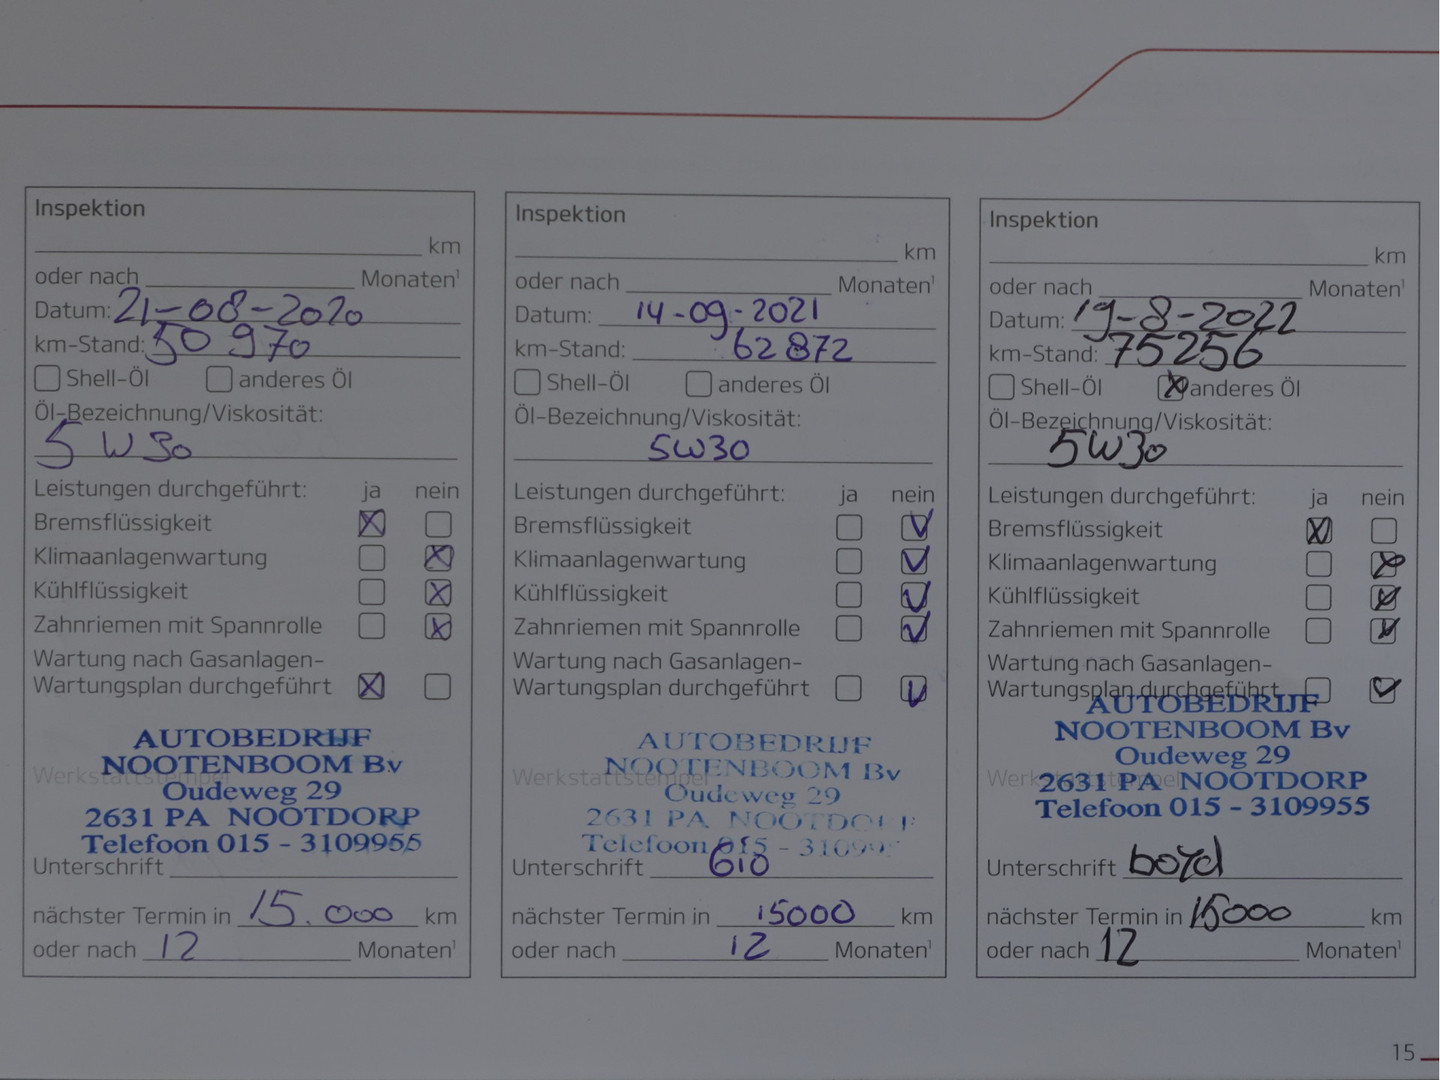 Inspektion
km
oder nach Monaten¹
Datum: 21-08-2020
km-Stand: 50 970
Shell-Öl anderes Öl
Öl-Bezeichnung/Viskosität:
5 W 30
Leistungen durchgeführt: ja nein
Bremsflüssigkeit X
Klimaanlagenwartung X
Kühlflüssigkeit X
Zahnriemen mit Spannrolle X
Wartung nach Gasanlagen-
Wartungsplan durchgeführt X
AUTOBEDRIJF
NOOTENBOOM Bv
Werkstattstempel
Oudeweg 29
2631 PA NOOTDORP
Telefoon 015 - 3109955
Unterschrift
nächster Termin in 15.000 km
oder nach 12 Monaten¹
Inspektion
km
oder nach Monaten¹
Datum: 14-09-2021
km-Stand: 62872
Shell-Öl anderes Öl
Öl-Bezeichnung/Viskosität:
5W30
Leistungen durchgeführt: ja nein
Bremsflüssigkeit
Klimaanlagenwartung
Kühlflüssigkeit
Zahnriemen mit Spannrolle
Wartung nach Gasanlagen-
Wartungsplan durchgeführt
AUTOBEDRIJF
NOOTENBOOM Bv
Werkstattstempel
Oudeweg 29
2631 PA
Telefoon 015 -
Unterschrift
nächster Termin in 15000 km
oder nach 12 Monaten¹
Inspektion
km
oder nach Monaten¹
Datum: 19-8-2022
km-Stand: 75256
Shell-Öl X anderes Öl
Öl-Bezeichnung/Viskosität:
5W30
Leistungen durchgeführt: ja nein
Bremsflüssigkeit X
Klimaanlagenwartung X
Kühlflüssigkeit
Zahnriemen mit Spannrolle
Wartung nach Gasanlagen-
Wartungsplan durchgeführt
AUTOBEDRIJF
NOOTENBOOM Bv
Oudeweg 29
Werkstattstempel
2631 PA NOOTDORP
Telefoon 015 - 3109955
Unterschrift boyd
nächster Termin in 15000 km
oder nach 12 Monaten¹
15